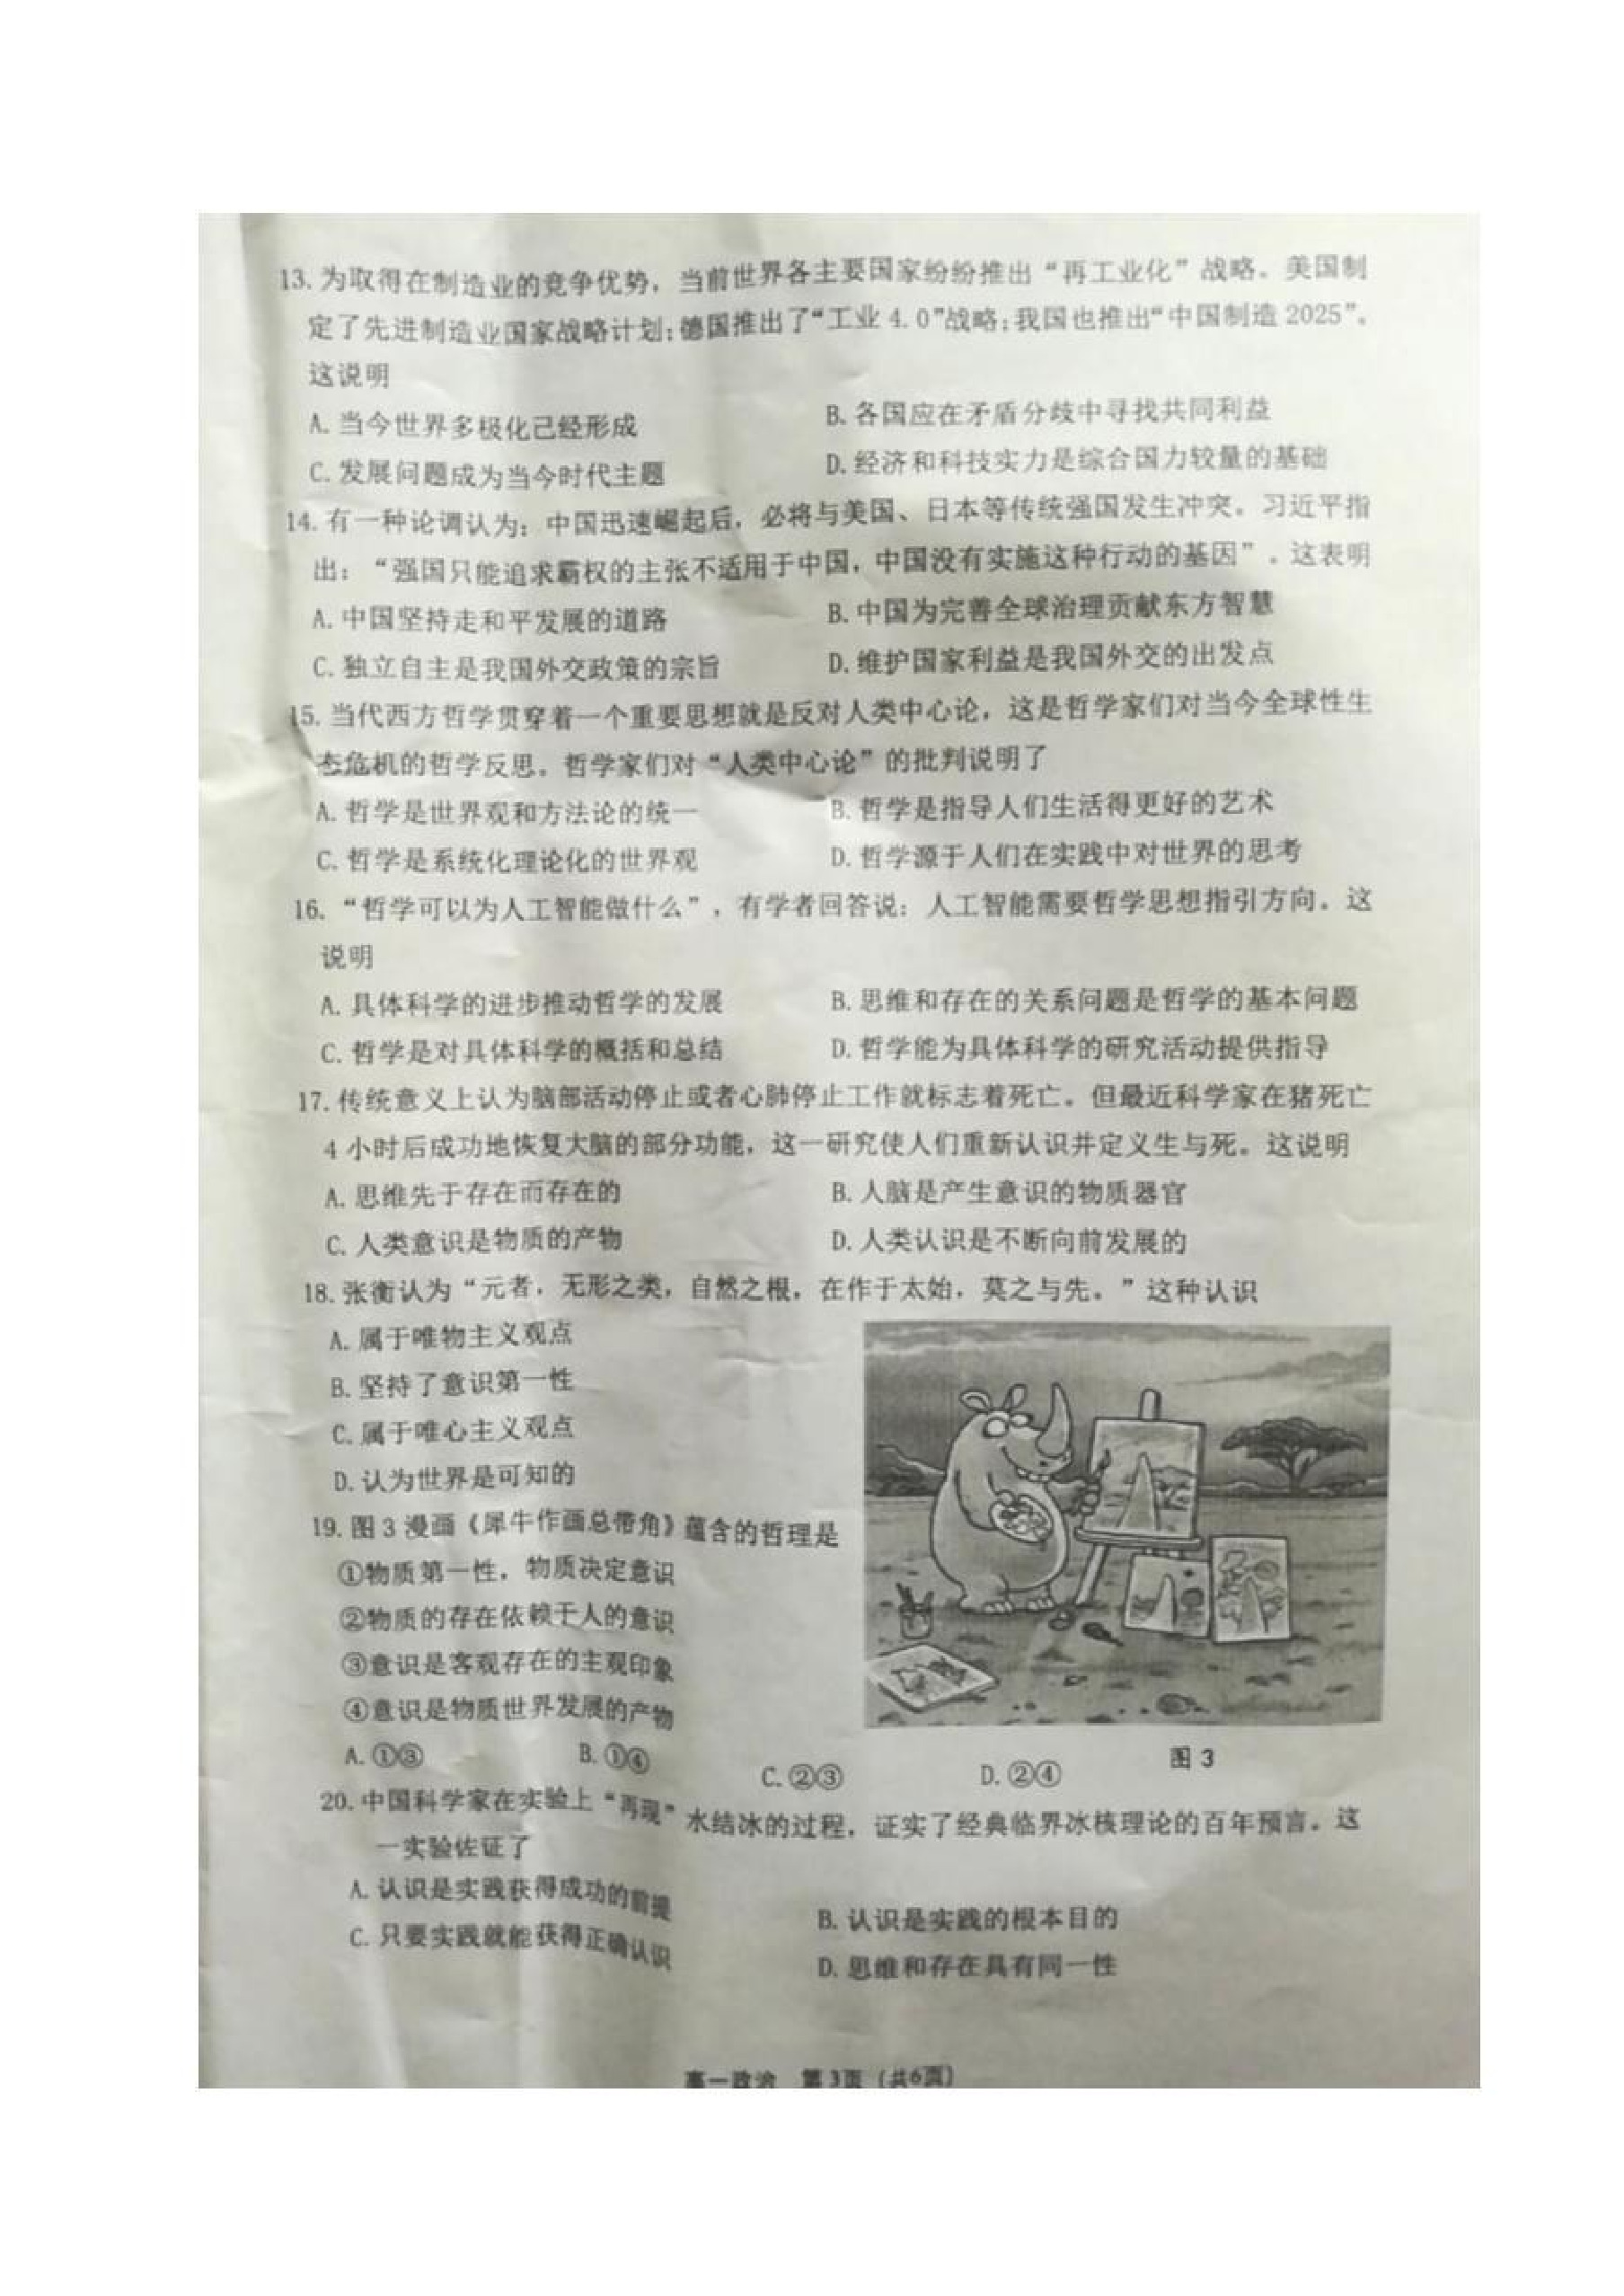 13. 为取得在制造业的竞争优势，当前世界各主要国家纷纷推出“再工业化”战略。美国制
定了先进制造业国家战略计划；德国推出了“工业 4.0”战略；我国也推出“中国制造 2025”。
这说明
A. 当今世界多极化已经形成 B. 各国应在矛盾分歧中寻找共同利益
C. 发展问题成为当今时代主题 D. 经济和科技实力是综合国力较量的基础
14. 有一种论调认为：中国迅速崛起后，必将与美国、日本等传统强国发生冲突。习近平指
出：“强国只能追求霸权的主张不适用于中国，中国没有实施这种行动的基因”。这表明
A. 中国坚持走和平发展的道路 B. 中国为完善全球治理贡献东方智慧
C. 独立自主是我国外交政策的宗旨 D. 维护国家利益是我国外交的出发点
15. 当代西方哲学贯穿着一个重要思想就是反对人类中心论，这是哲学家们对当今全球性生
态危机的哲学反思。哲学家们对“人类中心论”的批判说明了
A. 哲学是世界观和方法论的统一 B. 哲学是指导人们生活得更好的艺术
C. 哲学是系统化理论化的世界观 D. 哲学源于人们在实践中对世界的思考
16. “哲学可以为人工智能做什么”，有学者回答说：人工智能需要哲学思想指引方向。这
说明
A. 具体科学的进步推动哲学的发展 B. 思维和存在的关系问题是哲学的基本问题
C. 哲学是对具体科学的概括和总结 D. 哲学能为具体科学的研究活动提供指导
17. 传统意义上认为脑部活动停止或者心肺停止工作就标志着死亡。但最近科学家在猪死亡
4 小时后成功地恢复大脑的部分功能，这一研究使人们重新认识并定义生与死。这说明
A. 思维先于存在而存在的 B. 人脑是产生意识的物质器官
C. 人类意识是物质的产物 D. 人类认识是不断向前发展的
18. 张衡认为“元者，无形之类，自然之根，在作于太始，莫之与先。”这种认识
A. 属于唯物主义观点
B. 坚持了意识第一性
C. 属于唯心主义观点
D. 认为世界是可知的
19. 图 3 漫画《犀牛作画总带角》蕴含的哲理是
①物质第一性，物质决定意识
②物质的存在依赖于人的意识
③意识是客观存在的主观印象
④意识是物质世界发展的产物
A. ①③ B. ①④ C. ②③ D. ②④
图 3
20. 中国科学家在实验上“再现”水结冰的过程，证实了经典临界冰核理论的百年预言。这
一实验佐证了
A. 认识是实践获得成功的前提 B. 认识是实践的根本目的
C. 只要实践就能获得正确认识 D. 思维和存在具有同一性
高一政治 第3页（共6页）